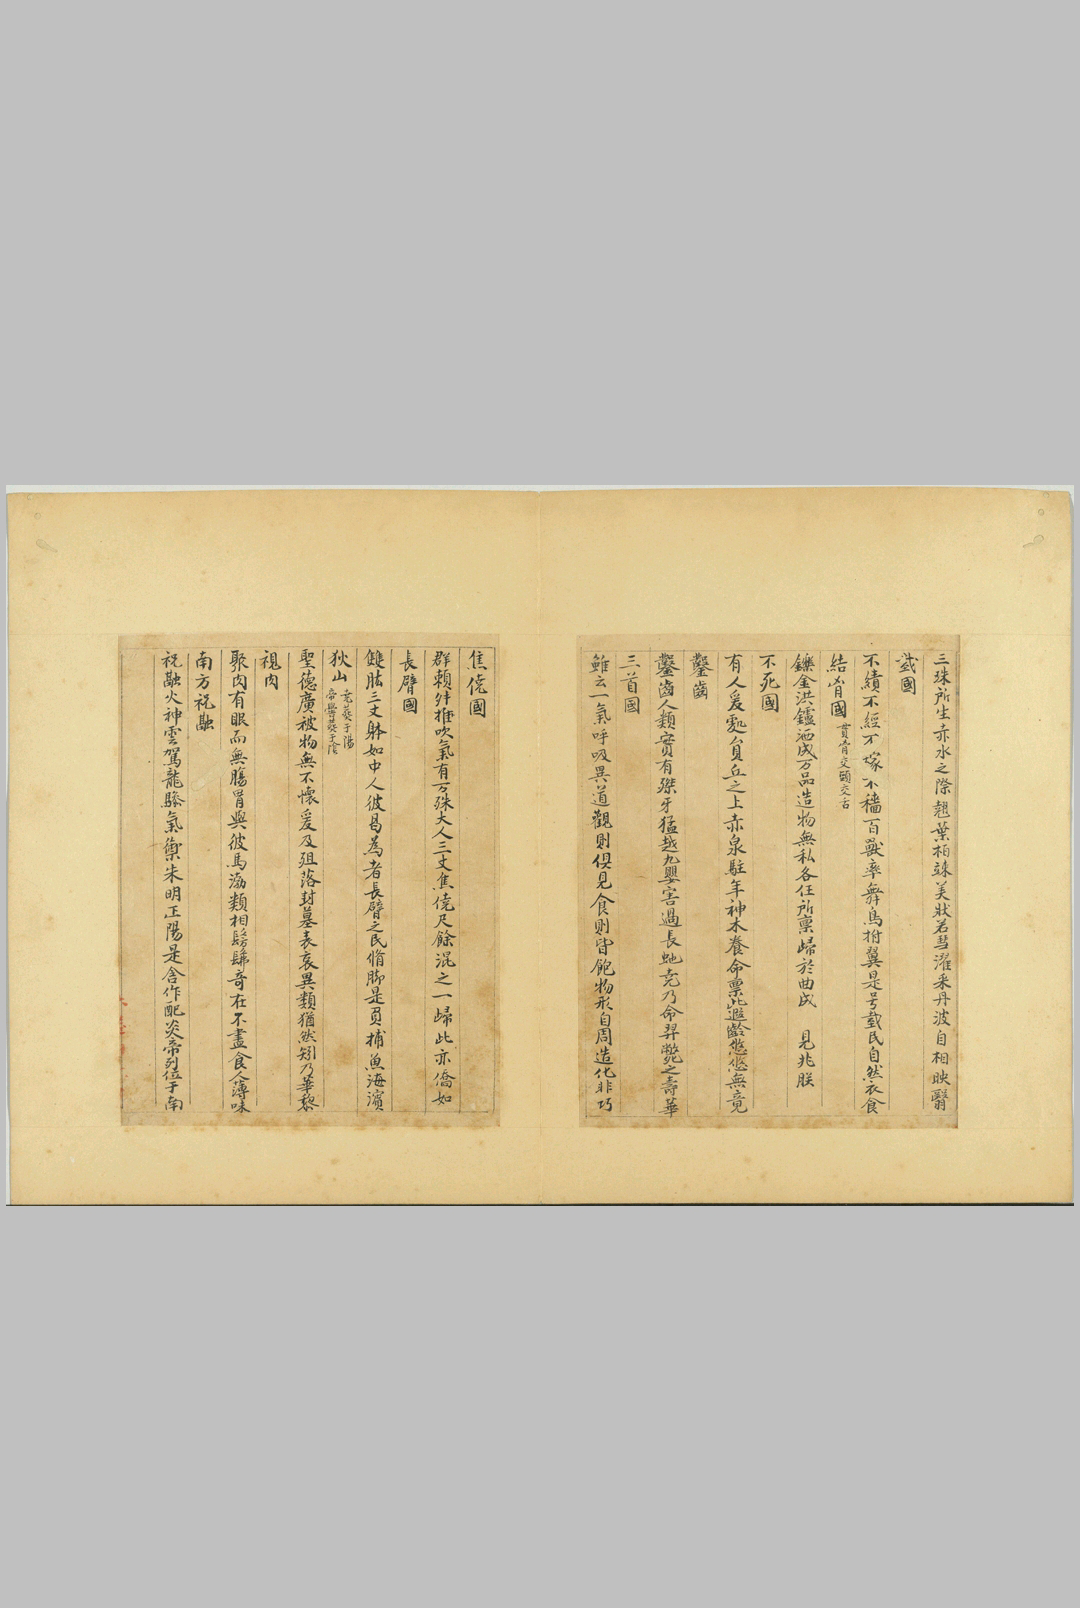 三珠所生赤水之際翹葉柏竦美狀若彗濯采丹波自相映翳
臷國
不績不經不稼不穡百獸率舞鳥拊翼是号臷民自然衣食
結匈國 貫匈交頸交舌
鑠金洪鑪洒成万品造物無私各任所稟歸於曲成 見兆朕
不死國
有人爰處貟丘之上赤泉駐年神木養命稟此遐齡悠悠無竟
鑿齒
鑿齒人類實有傑牙猛越九嬰害過長虵尭乃命羿斃之壽華
三首國
雖云一氣呼吸異道觀則俱見食則皆飽物形自周造化非巧
焦僥國
群籟舛推吹氣有万殊大人三丈焦僥尺餘混之一歸此亦僑如
長臂國
雙肱三丈躰如中人彼曷為者長臂之民脩脚是負捕魚海濱
狄山 尭葬于陽帝嚳葬于陰
聖德廣被物無不懷爰及殂落封墓表哀異類猶然矧乃華黎
視肉
聚肉有眼而無腸胃與彼馬勃類相髣髴奇在不盡食人薄味
南方祝融
祝融火神雲駕龍驂氣禦朱明正陽是含作配炎帝列位于南